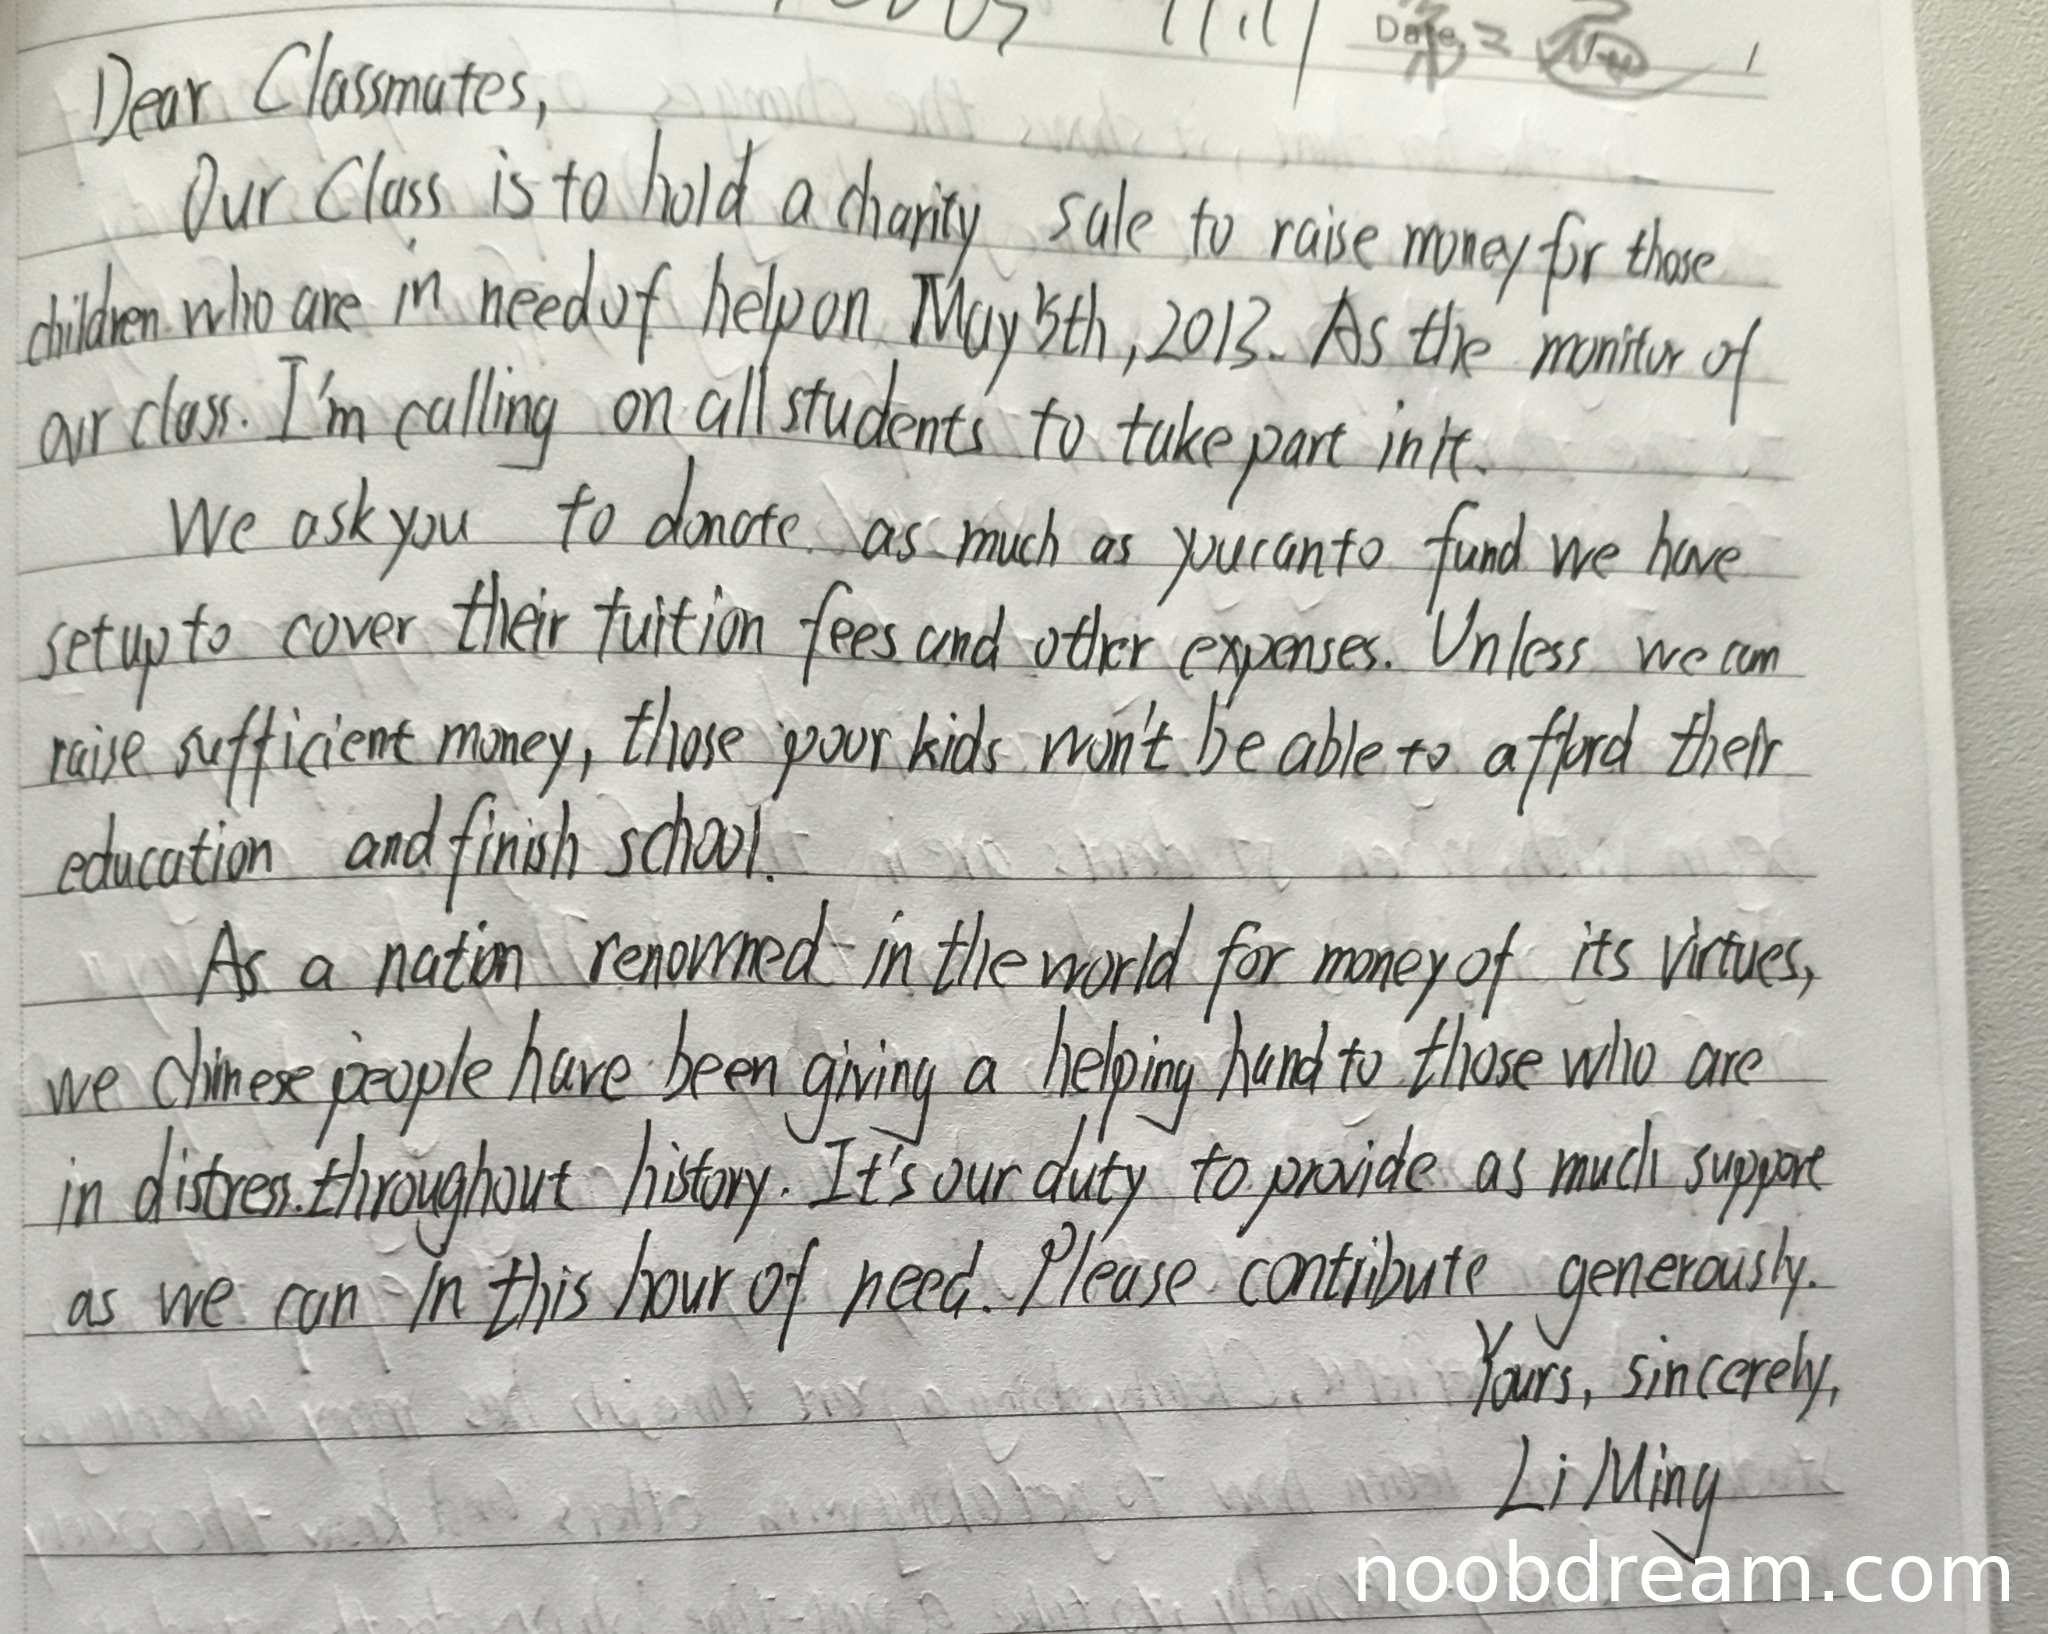 Date
Dear Classmates,
Our Class is to hold a charity sale to raise money for those
children who are in need of help on May 5th, 2013. As the monitor of
our class. I'm calling on all students to take part in it.
We ask you to donate as much as you can to fund we have
set up to cover their tuition fees and other expenses. Unless we can
raise sufficient money, those poor kids won't be able to afford their
education and finish school.
As a nation renowned in the world for money of its virtues,
we chinese people have been giving a helping hand to those who are
in distress. throughout history. It's our duty to provide as much support
as we can in this hour of need. Please contribute generously.
Yours, sincerely,
Li Ming
noobdream.com